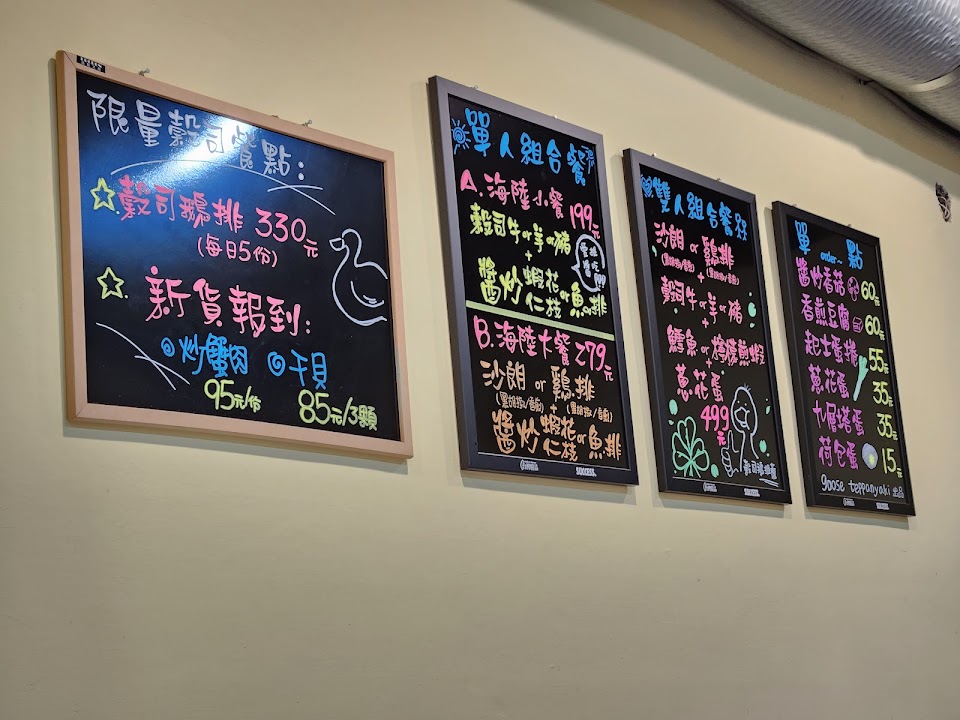 限量穀司餐點:
穀司鵝排 330元
(每日5份)
新貨報到:
炒蟹肉 干貝
95元/份 85元/3顆
單人組合餐
A.海陸小餐 199元
穀司牛or羊or豬
+
醬炒 蝦花仁枝 or 魚排
B.海陸大餐 279元
沙朗 or 雞排
(黑胡椒/香蒜) + (黑胡椒/香蒜)
醬炒 蝦花仁枝 or 魚排
SUCCESS
雙人組合餐
沙朗 or 雞排
(黑胡椒/香蒜) + (黑胡椒/香蒜)
穀司牛or羊or豬
+
鱈魚 or 檸檬煎蝦
+
蔥花蛋
499元
SUCCESS
單 order~ 點
醬炒香菇 60元
香煎豆腐 60元
起士蛋捲 55元
蔥花蛋 35元
九層塔蛋 35元
荷包蛋 15元
goose teppanyaki 出品
SUCCESS